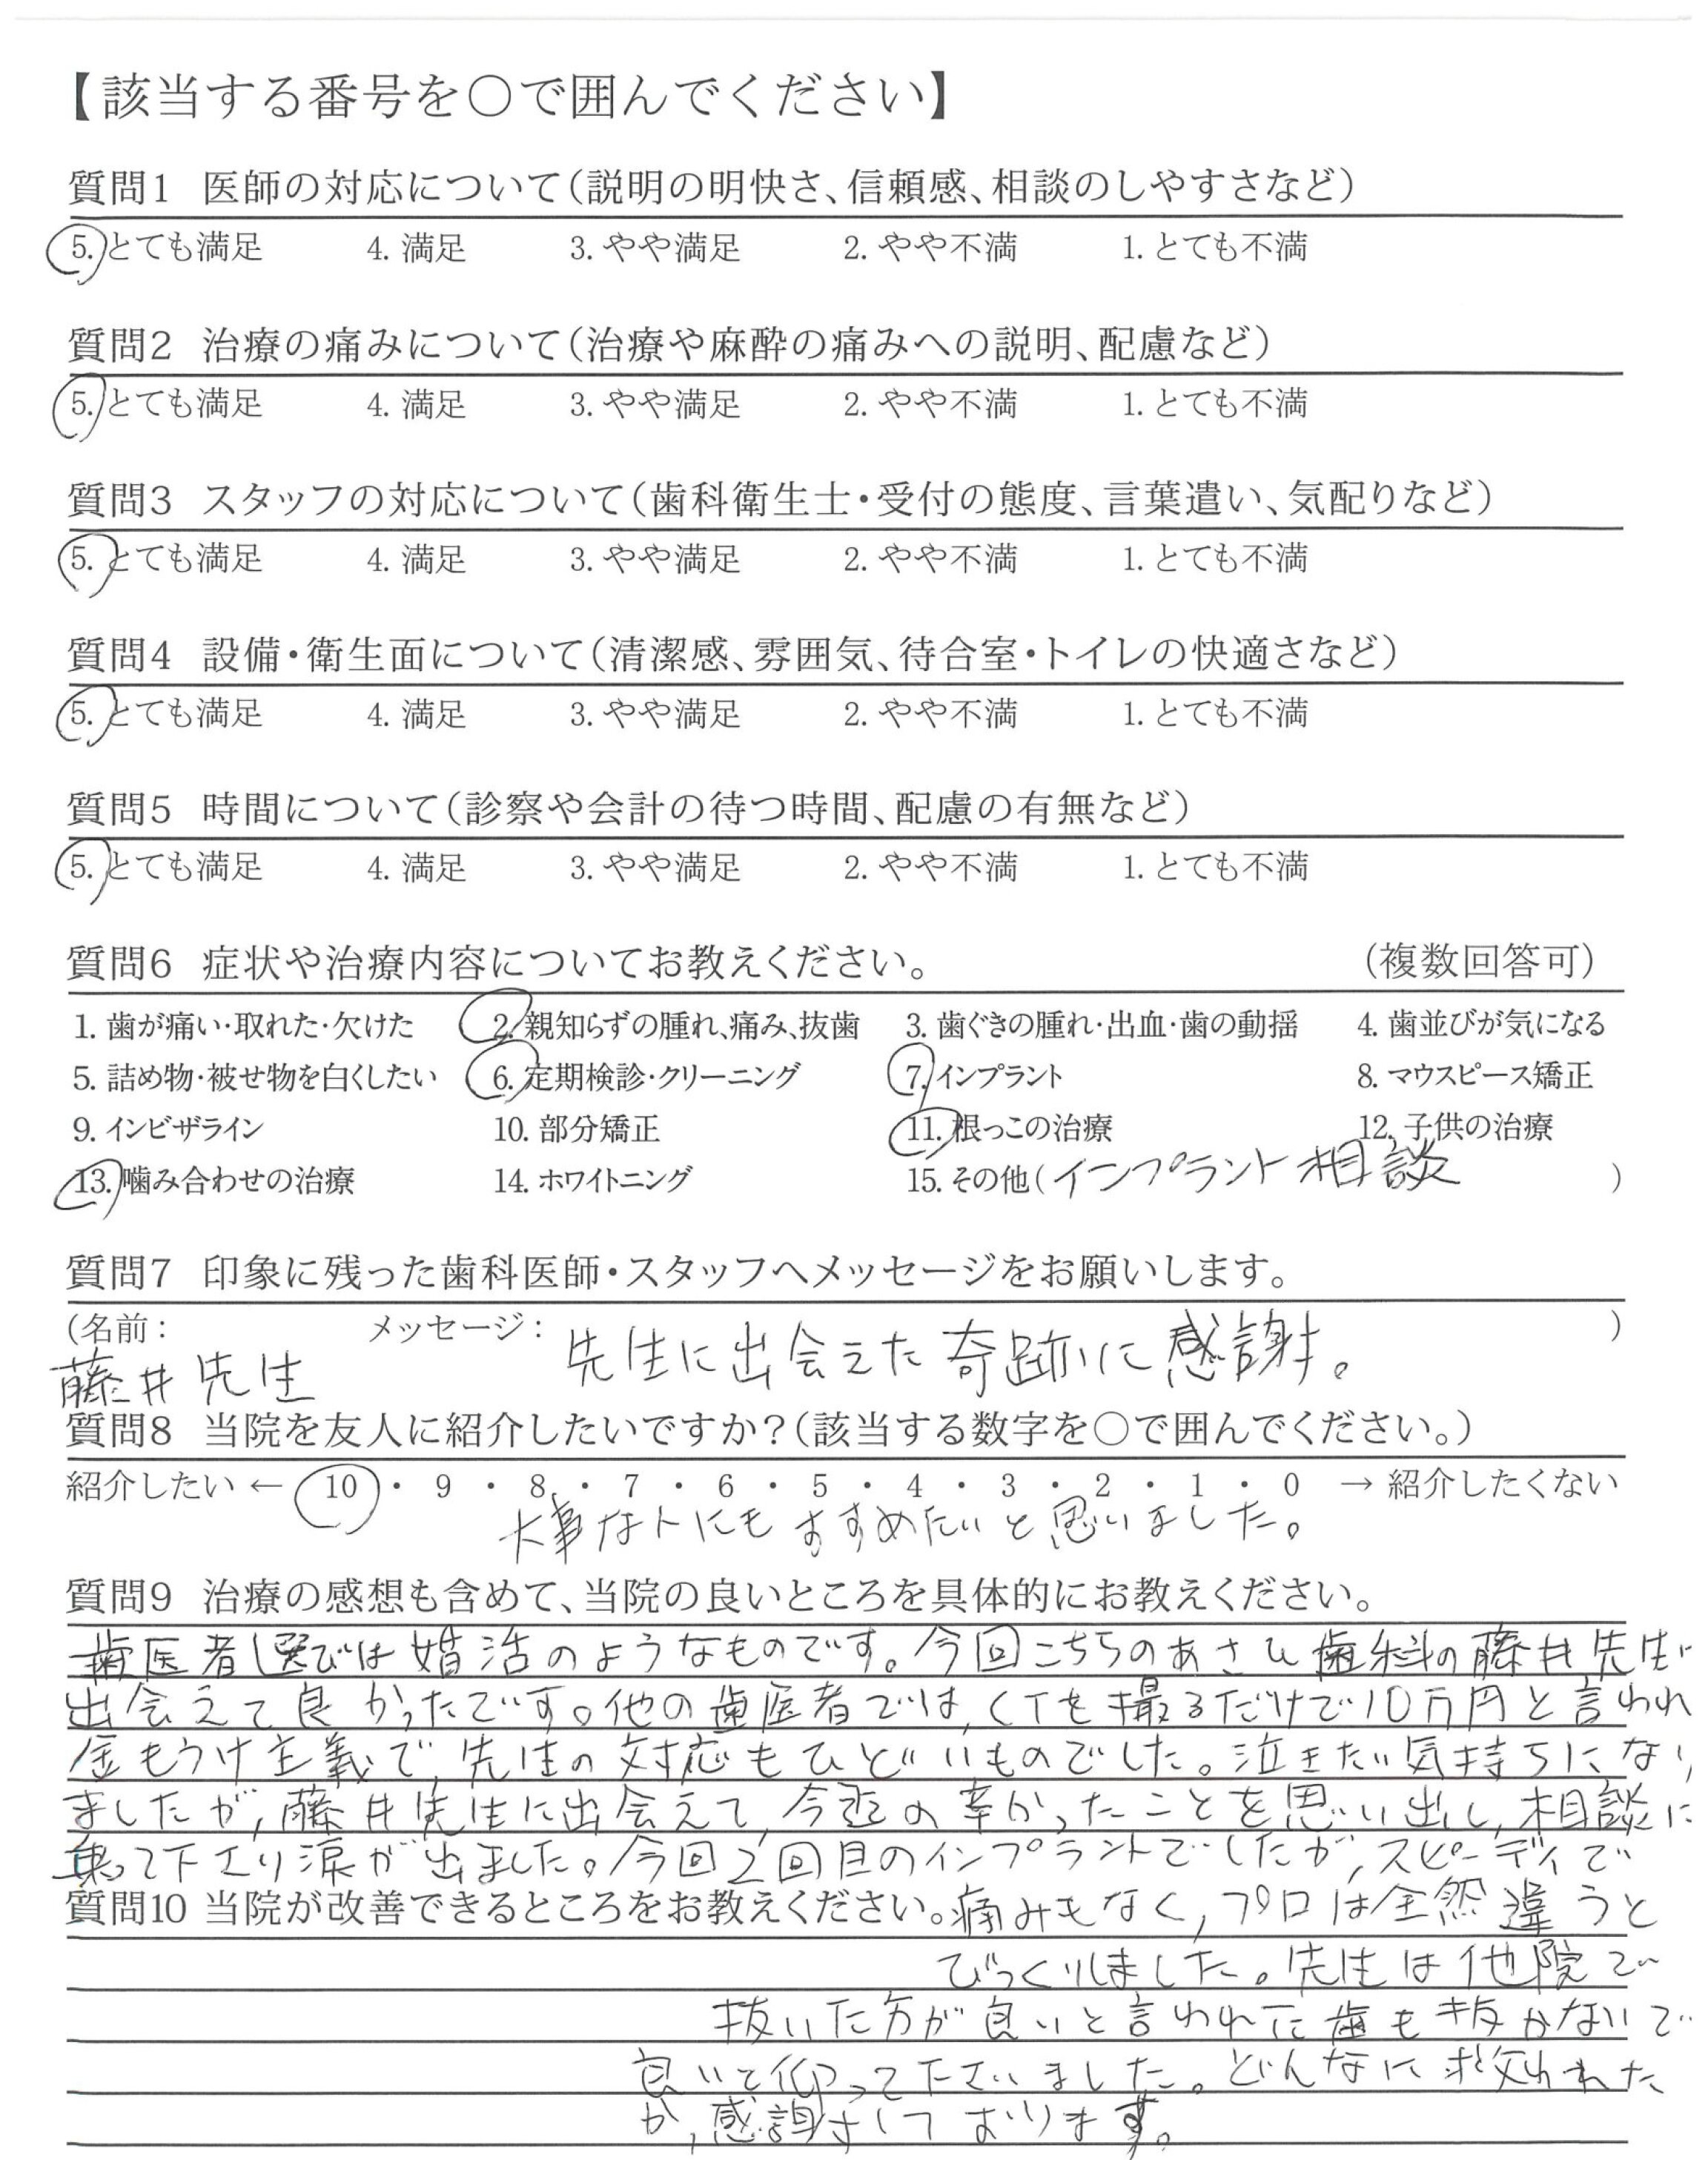 【該当する番号を○で囲んでください】
質問1 医師の対応について(説明の明快さ、信頼感、相談のしやすさなど)
5. とても満足 4. 満足 3. やや満足 2. やや不満 1. とても不満
質問2 治療の痛みについて(治療や麻酔の痛みへの説明、配慮など)
5. とても満足 4. 満足 3. やや満足 2. やや不満 1. とても不満
質問3 スタッフの対応について(歯科衛生士・受付の態度、言葉遣い、気配りなど)
5. とても満足 4. 満足 3. やや満足 2. やや不満 1. とても不満
質問4 設備・衛生面について(清潔感、雰囲気、待合室・トイレの快適さなど)
5. とても満足 4. 満足 3. やや満足 2. やや不満 1. とても不満
質問5 時間について(診察や会計の待つ時間、配慮の有無など)
5. とても満足 4. 満足 3. やや満足 2. やや不満 1. とても不満
質問6 症状や治療内容についてお教えください。 (複数回答可)
1. 歯が痛い・取れた・欠けた 2. 親知らずの腫れ、痛み、抜歯 3. 歯ぐきの腫れ・出血・歯の動揺 4. 歯並びが気になる
5. 詰め物・被せ物を白くしたい 6. 定期検診・クリーニング 7. インプラント 8. マウスピース矯正
9. インビザライン 10. 部分矯正 11. 根っこの治療 12. 子供の治療
13. 噛み合わせの治療 14. ホワイトニング 15. その他(インプラント相談 )
質問7 印象に残った歯科医師・スタッフへメッセージをお願いします。
(名前: メッセージ: 先生に出会えた奇跡に感謝。 )
藤井先生
質問8 当院を友人に紹介したいですか?(該当する数字を○で囲んでください。)
紹介したい ← 10 ・ 9 ・ 8 ・ 7 ・ 6 ・ 5 ・ 4 ・ 3 ・ 2 ・ 1 ・ 0 → 紹介したくない
大事な人にもすすめたいと思いました。
質問9 治療の感想も含めて、当院の良いところを具体的にお教えください。
歯医者選びは婚活のようなものです。今回こちらのあさひ歯科の藤井先生に
出会えて良かったです。他の歯医者では、CTを撮るだけで10万円と言われ
金もうけ主義で、先生の対応もひどいものでした。泣きたい気持ちになり
ましたが、藤井先生に出会えて、今迄の辛かったことを思い出し、相談に
乗って下さり涙が出ました。今回2回目のインプラントでしたが、スピーディで
質問10 当院が改善できるところをお教えください。痛みもなく、プロは全然違うと
びっくりしました。先生は他院で
抜いた方が良いと言われた歯も抜かないで
良いと仰って下さいました。どんなに救われた
か、感謝しております。